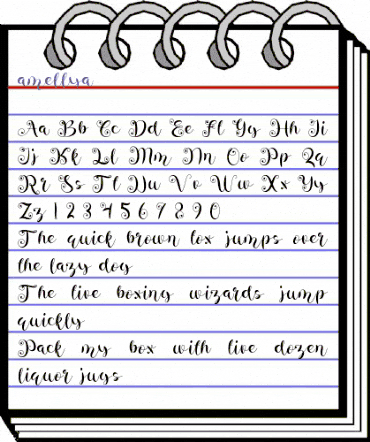 amellya
Aa Bb Cc Dd Ee Ff Gg Hh Ii
Jj Kk Ll Mm Nn Oo Pp Qq
Rr Ss Tt Uu Vv Ww Xx Yy
Zz 1 2 3 4 5 6 7 8 9 0
The quick brown fox jumps over
the lazy dog
The five boxing wizards jump
quickly
Pack my box with five dozen
liquor jugs